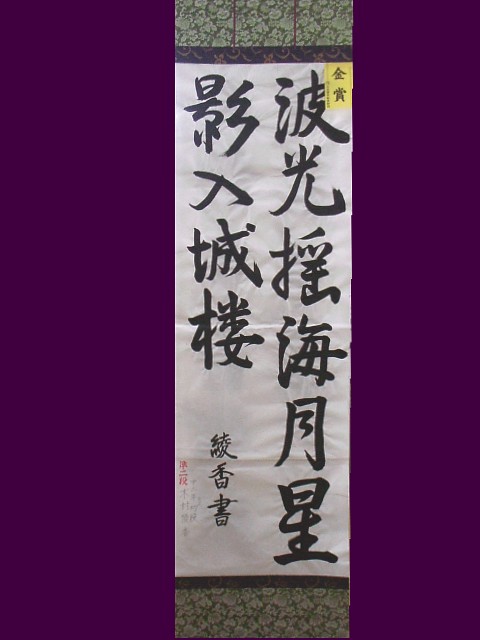 金賞
波光揺海月星
影入城楼
綾香書
準二段